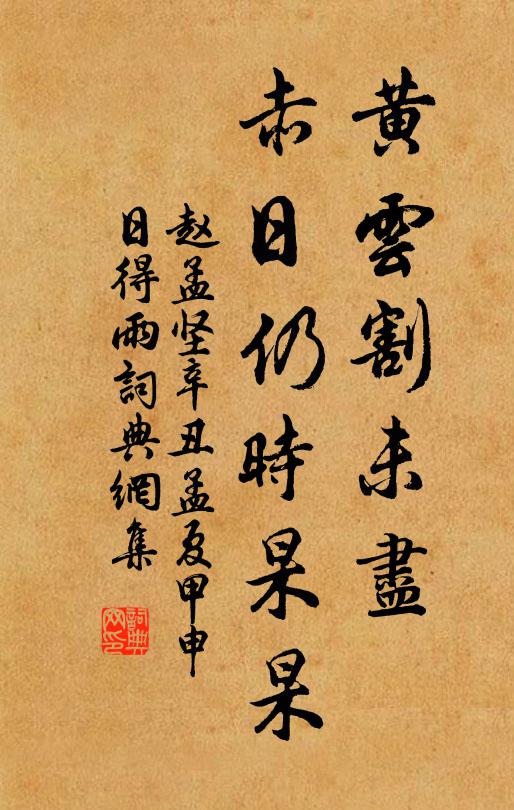 黄雲割未盡
赤日仍時杲杲
赵孟坚辛丑孟夏甲申
日得雨詞典網集
詞典
网印